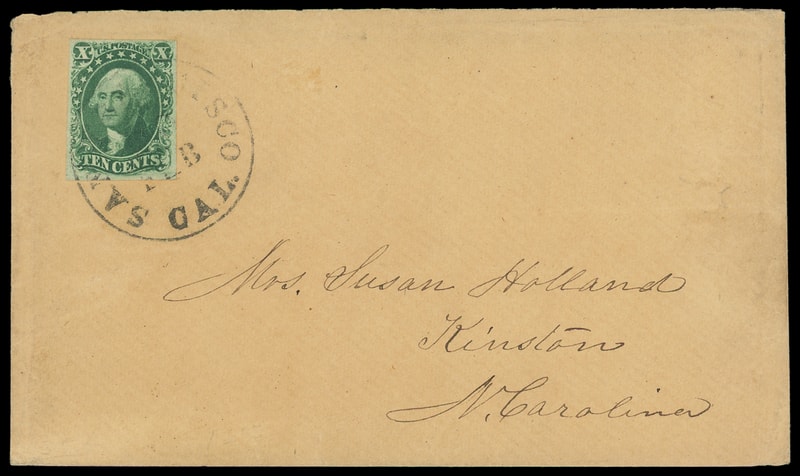 X U.S. POSTAGE X
TEN CENTS
SAN ISCO CAL.
FEB
Mrs. Susan Holland
Kinston
N. Carolina